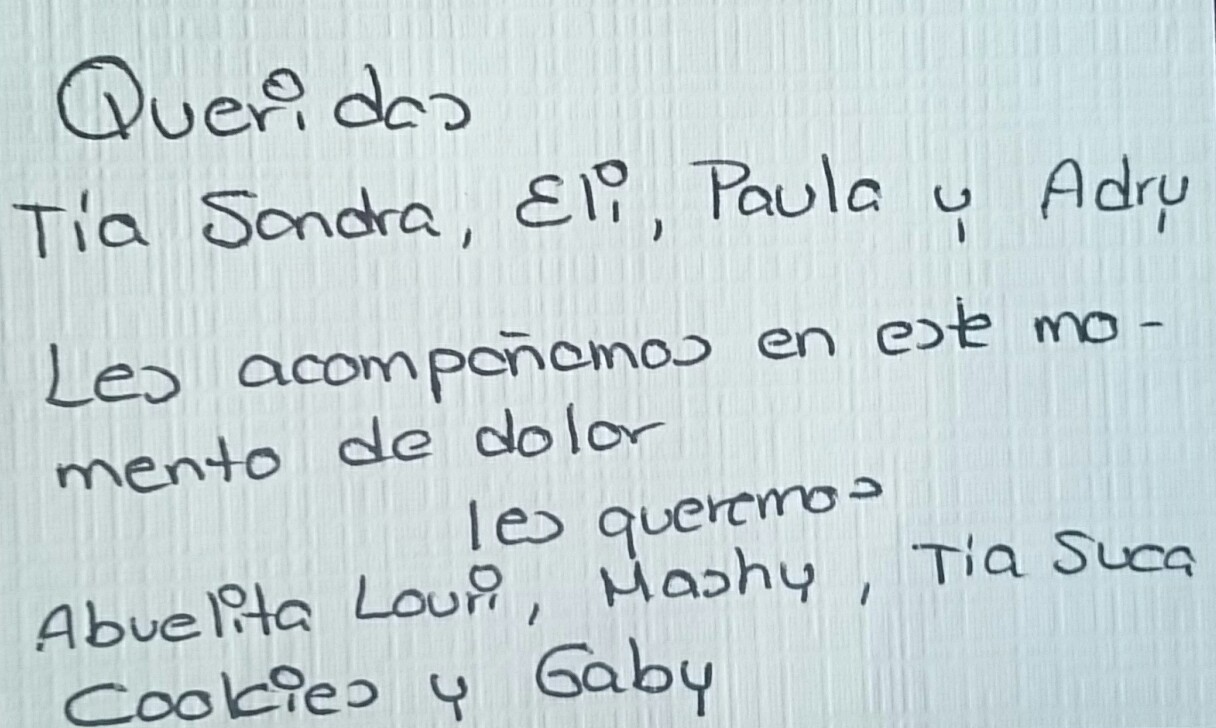 Queridas
Tía Sandra, Eli, Paula y Adry
Les acompañamos en este mo-
mento de dolor
les queremos
Abuelita Louri, Mashy, Tía Suca
Cookies y Gaby